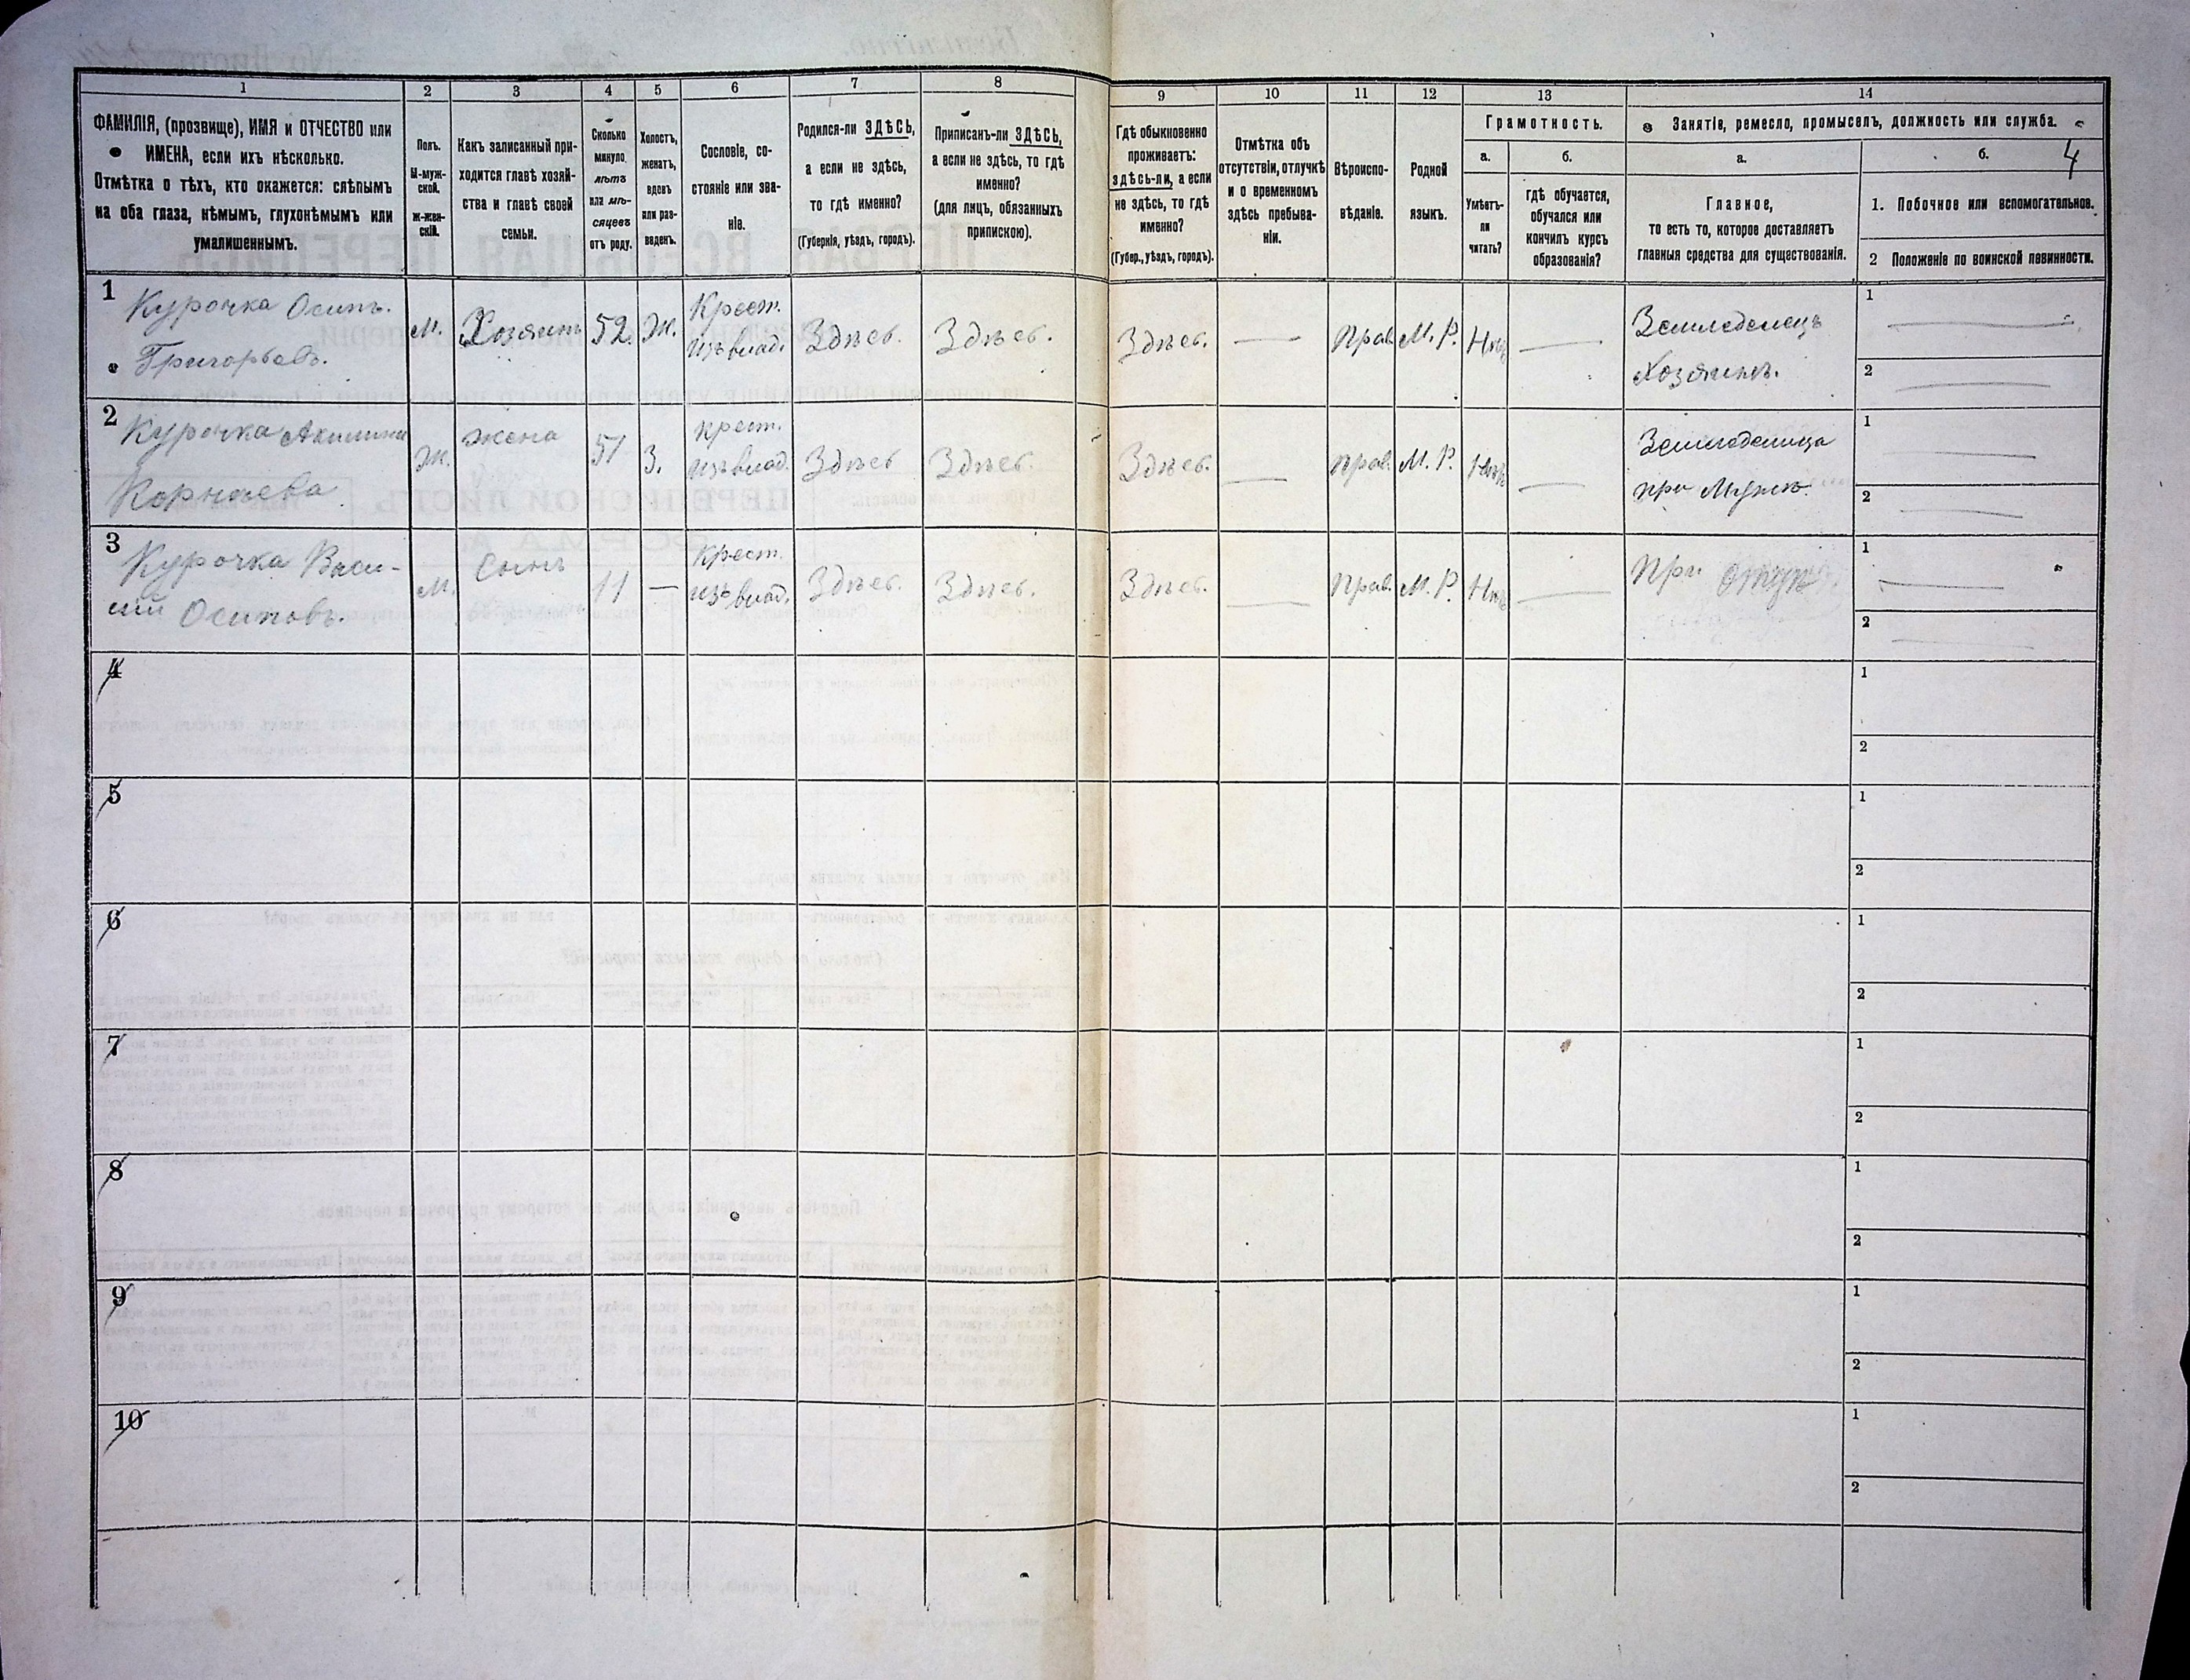 1 2 3 4 5 6 7 8 9 10 11 12 13 14
4
ФАМИЛІЯ, (прозвище), ИМЯ и ОТЧЕСТВО или
ИМЕНА, если ихъ нѣсколько.
Отмѣтка о тѣхъ, кто окажется: слѣпымъ
на оба глаза, нѣмымъ, глухонѣмымъ или
умалишеннымъ.
Полъ.
М-муж-
ской.
ж-жен-
скій.
Какъ записанный при-
ходится главѣ хозяй-
ства и главѣ своей
семьи.
Сколько
минуло
лѣтъ
или мѣ-
сяцевъ
отъ роду.
Холостъ,
женатъ,
вдовъ
или раз-
веденъ.
Сословіе, со-
стояніе или зва-
ніе.
Родился-ли ЗДѢСЬ,
а если не здѣсь,
то гдѣ именно?
(Губернія, уѣздъ, городъ).
Приписанъ-ли ЗДѢСЬ,
а если не здѣсь, то гдѣ
именно?
(для лицъ, обязанныхъ
припискою).
Гдѣ обыкновенно
проживаетъ:
здѣсь-ли, а если
не здѣсь, то гдѣ
именно?
(Губер., уѣздъ, городъ).
Отмѣтка объ
отсутствіи, отлучкѣ
и о временномъ
здѣсь пребыва-
ніи.
Вѣроиспо-
вѣданіе.
Родной
языкъ.
Грамотность.
а.
Умѣетъ-
ли
читать?
б.
гдѣ обучается,
обучался или
кончилъ курсъ
образованія?
Занятіе, ремесло, промыселъ, должность или служба.
а.
Главное,
то есть то, которое доставляетъ
главныя средства для существованія.
б.
1. Побочное или вспомогательное.
2 Положеніе по воинской повинности.
1
Курочка Осипъ.
Григорьевъ.
М.
Хозяинъ
52.
Ж.
Крест.
изъ влад.
Здѣсь.
Здѣсь.
Здѣсь.
—
Прав.
М. Р.
Нѣтъ
—
Земледелецъ
Хозяинъ.
1 —
2 —
2
Курочка Акилина
Корнѣева
Ж.
жена
51
З.
крест.
изъ влад.
Здѣсь
Здѣсь.
Здѣсь.
—
прав.
М. Р.
Нѣтъ
—
Земледелица
при Мужѣ.
1 —
2 —
3
Курочка Васи-
лій Осиповъ.
М.
Сынъ
11
—
Крест.
изъ влад.
Здѣсь.
Здѣсь.
Здѣсь.
—
Прав.
М. Р.
Нѣтъ
—
При отцѣ
1 —
2 —
4
1
2
5
1
2
6
1
2
7
1
2
8
1
2
9
1
2
10
1
2